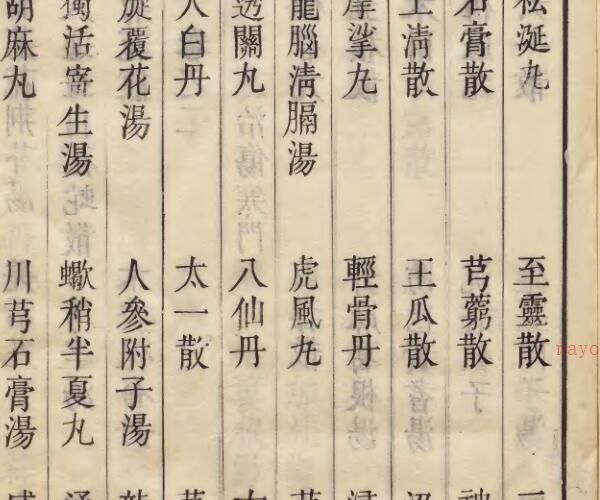 涎丸
至靈散
石膏散
芎藭散
上淸散
王瓜散
摩挲丸
輕骨丹
龍腦淸膈湯
虎風丸
透關丸
八仙丹
人白丹
太一散
旋覆花湯
人參附子湯
獨活寄生湯
蠍稍半夏丸
胡麻丸
川芎石膏湯
nayo